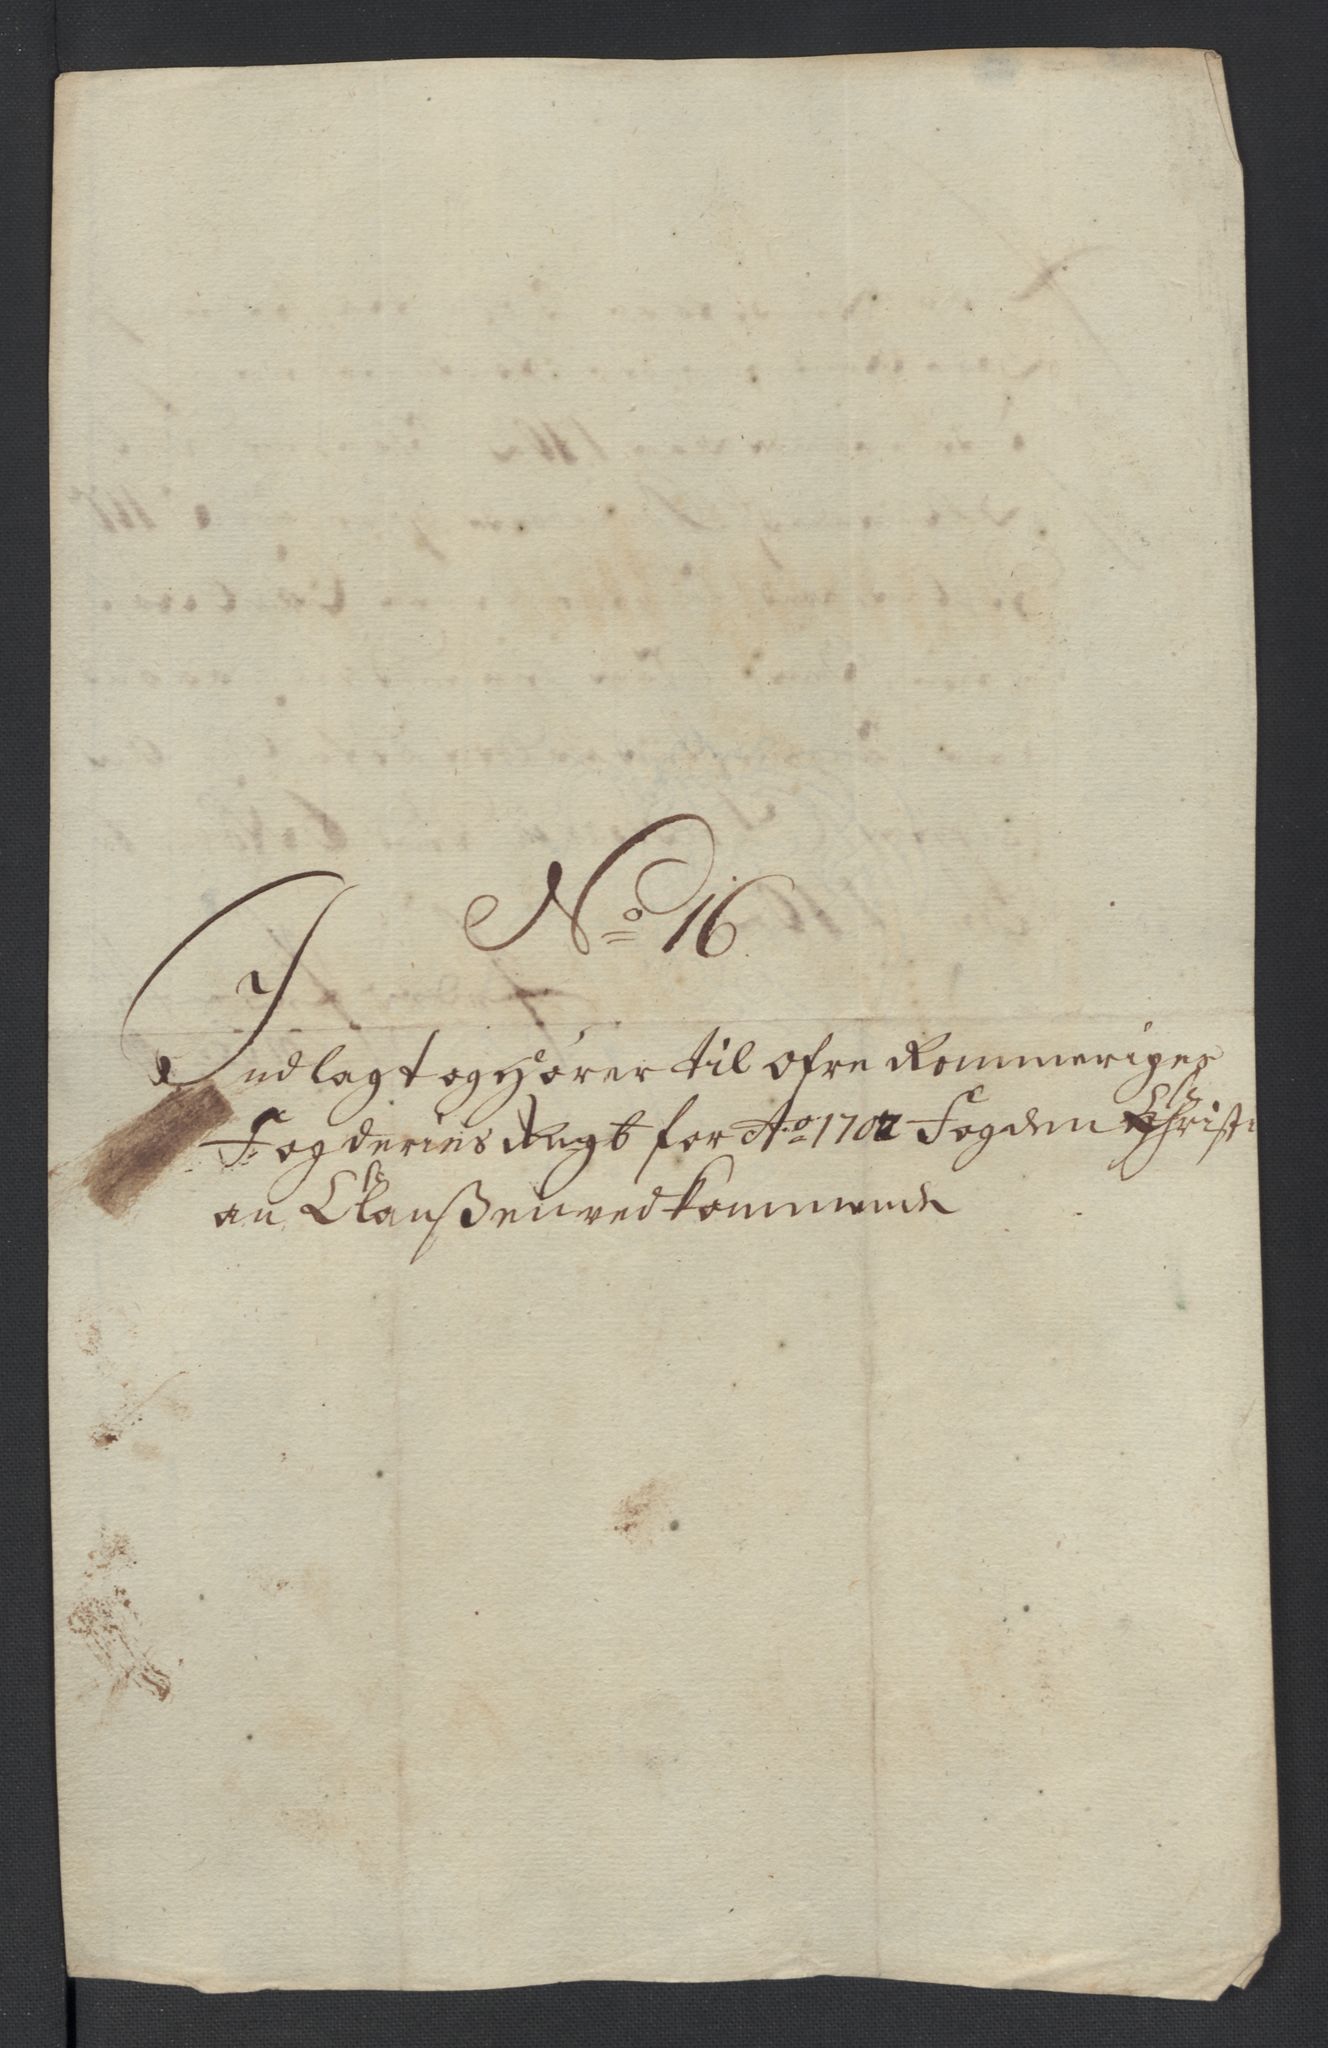 No 16
Indlagt og hører til Øfre Rommeriges
Fogderies Regb for Ao 1702 Fogden Christi
an Claußen ved kommende